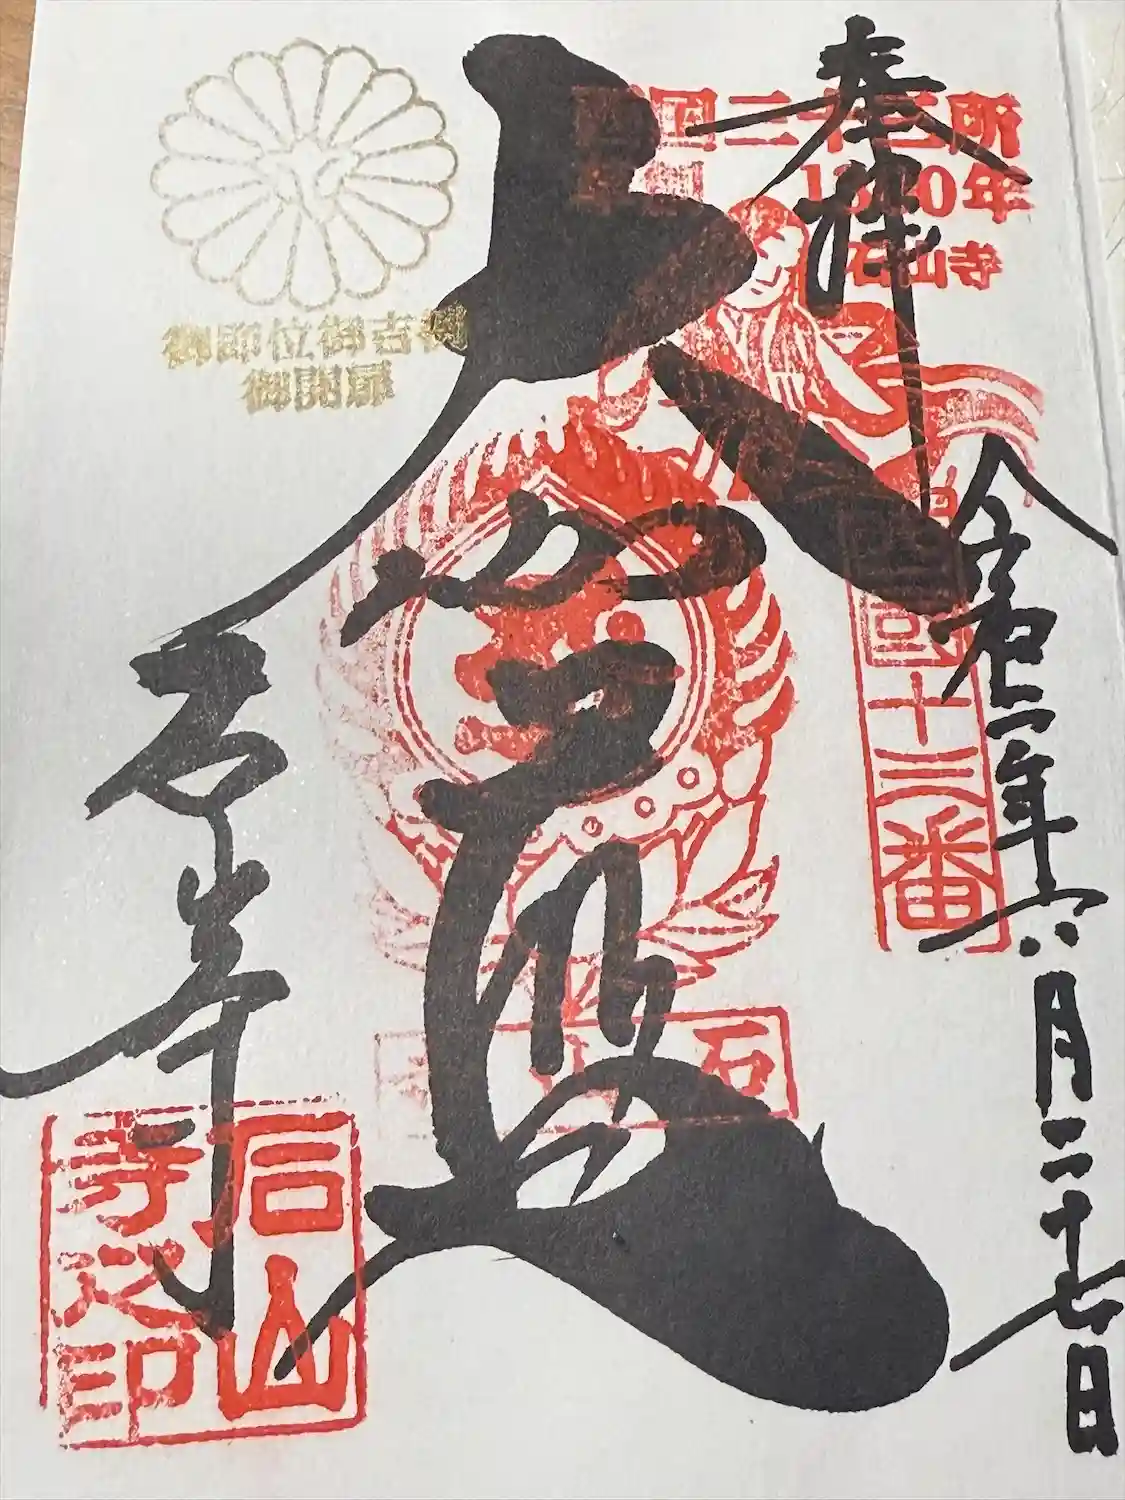 奉拝
西国三十三所
草創1300年
石山寺
西国十三番
令和二年六月二十七日
大伽藍
石山寺
石山寺
御即位御吉例
御開扉
石山寺之印